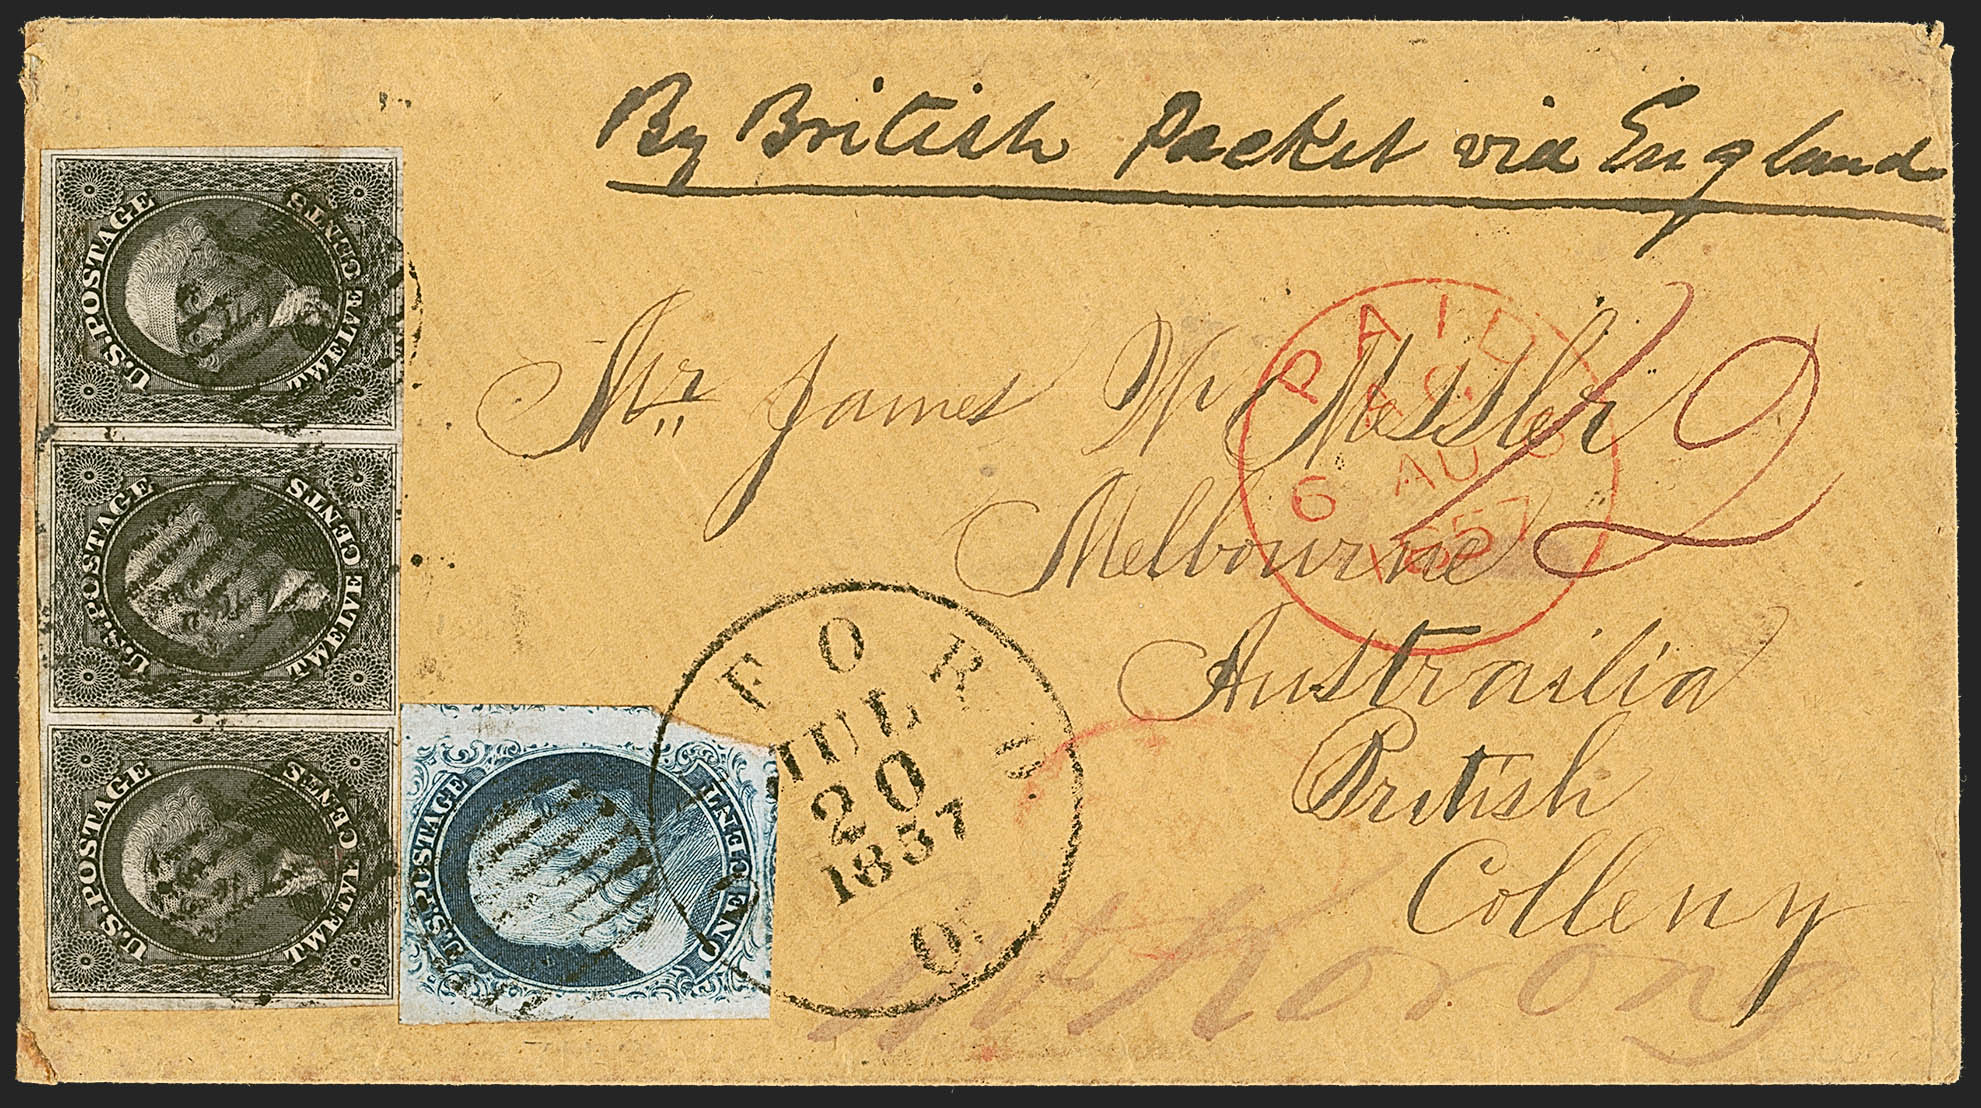 By British Packet via England
U.S. POSTAGE
TWELVE CENTS
U.S. POSTAGE
TWELVE CENTS
U.S. POSTAGE
TWELVE CENTS
U.S. POSTAGE
ONE CENT
PAID
6 AU 6
1857
2
Mr. James W Messler
Melbourne
Australia
British
Colleny
JUL
20
1857
O.
Mt Korong